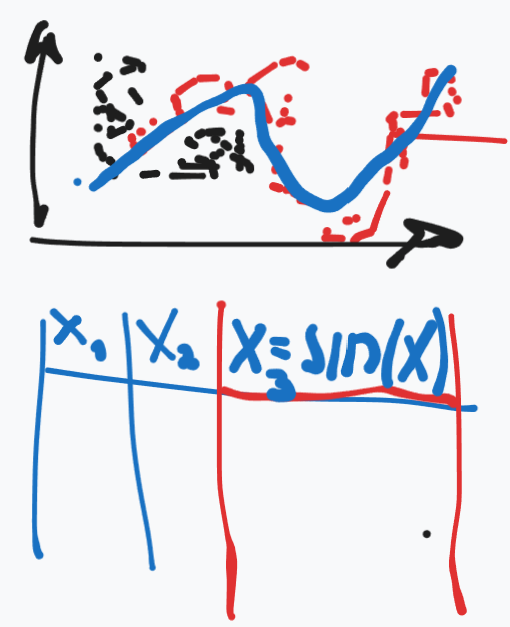 X₁ X₂ X₃ = sin(X)